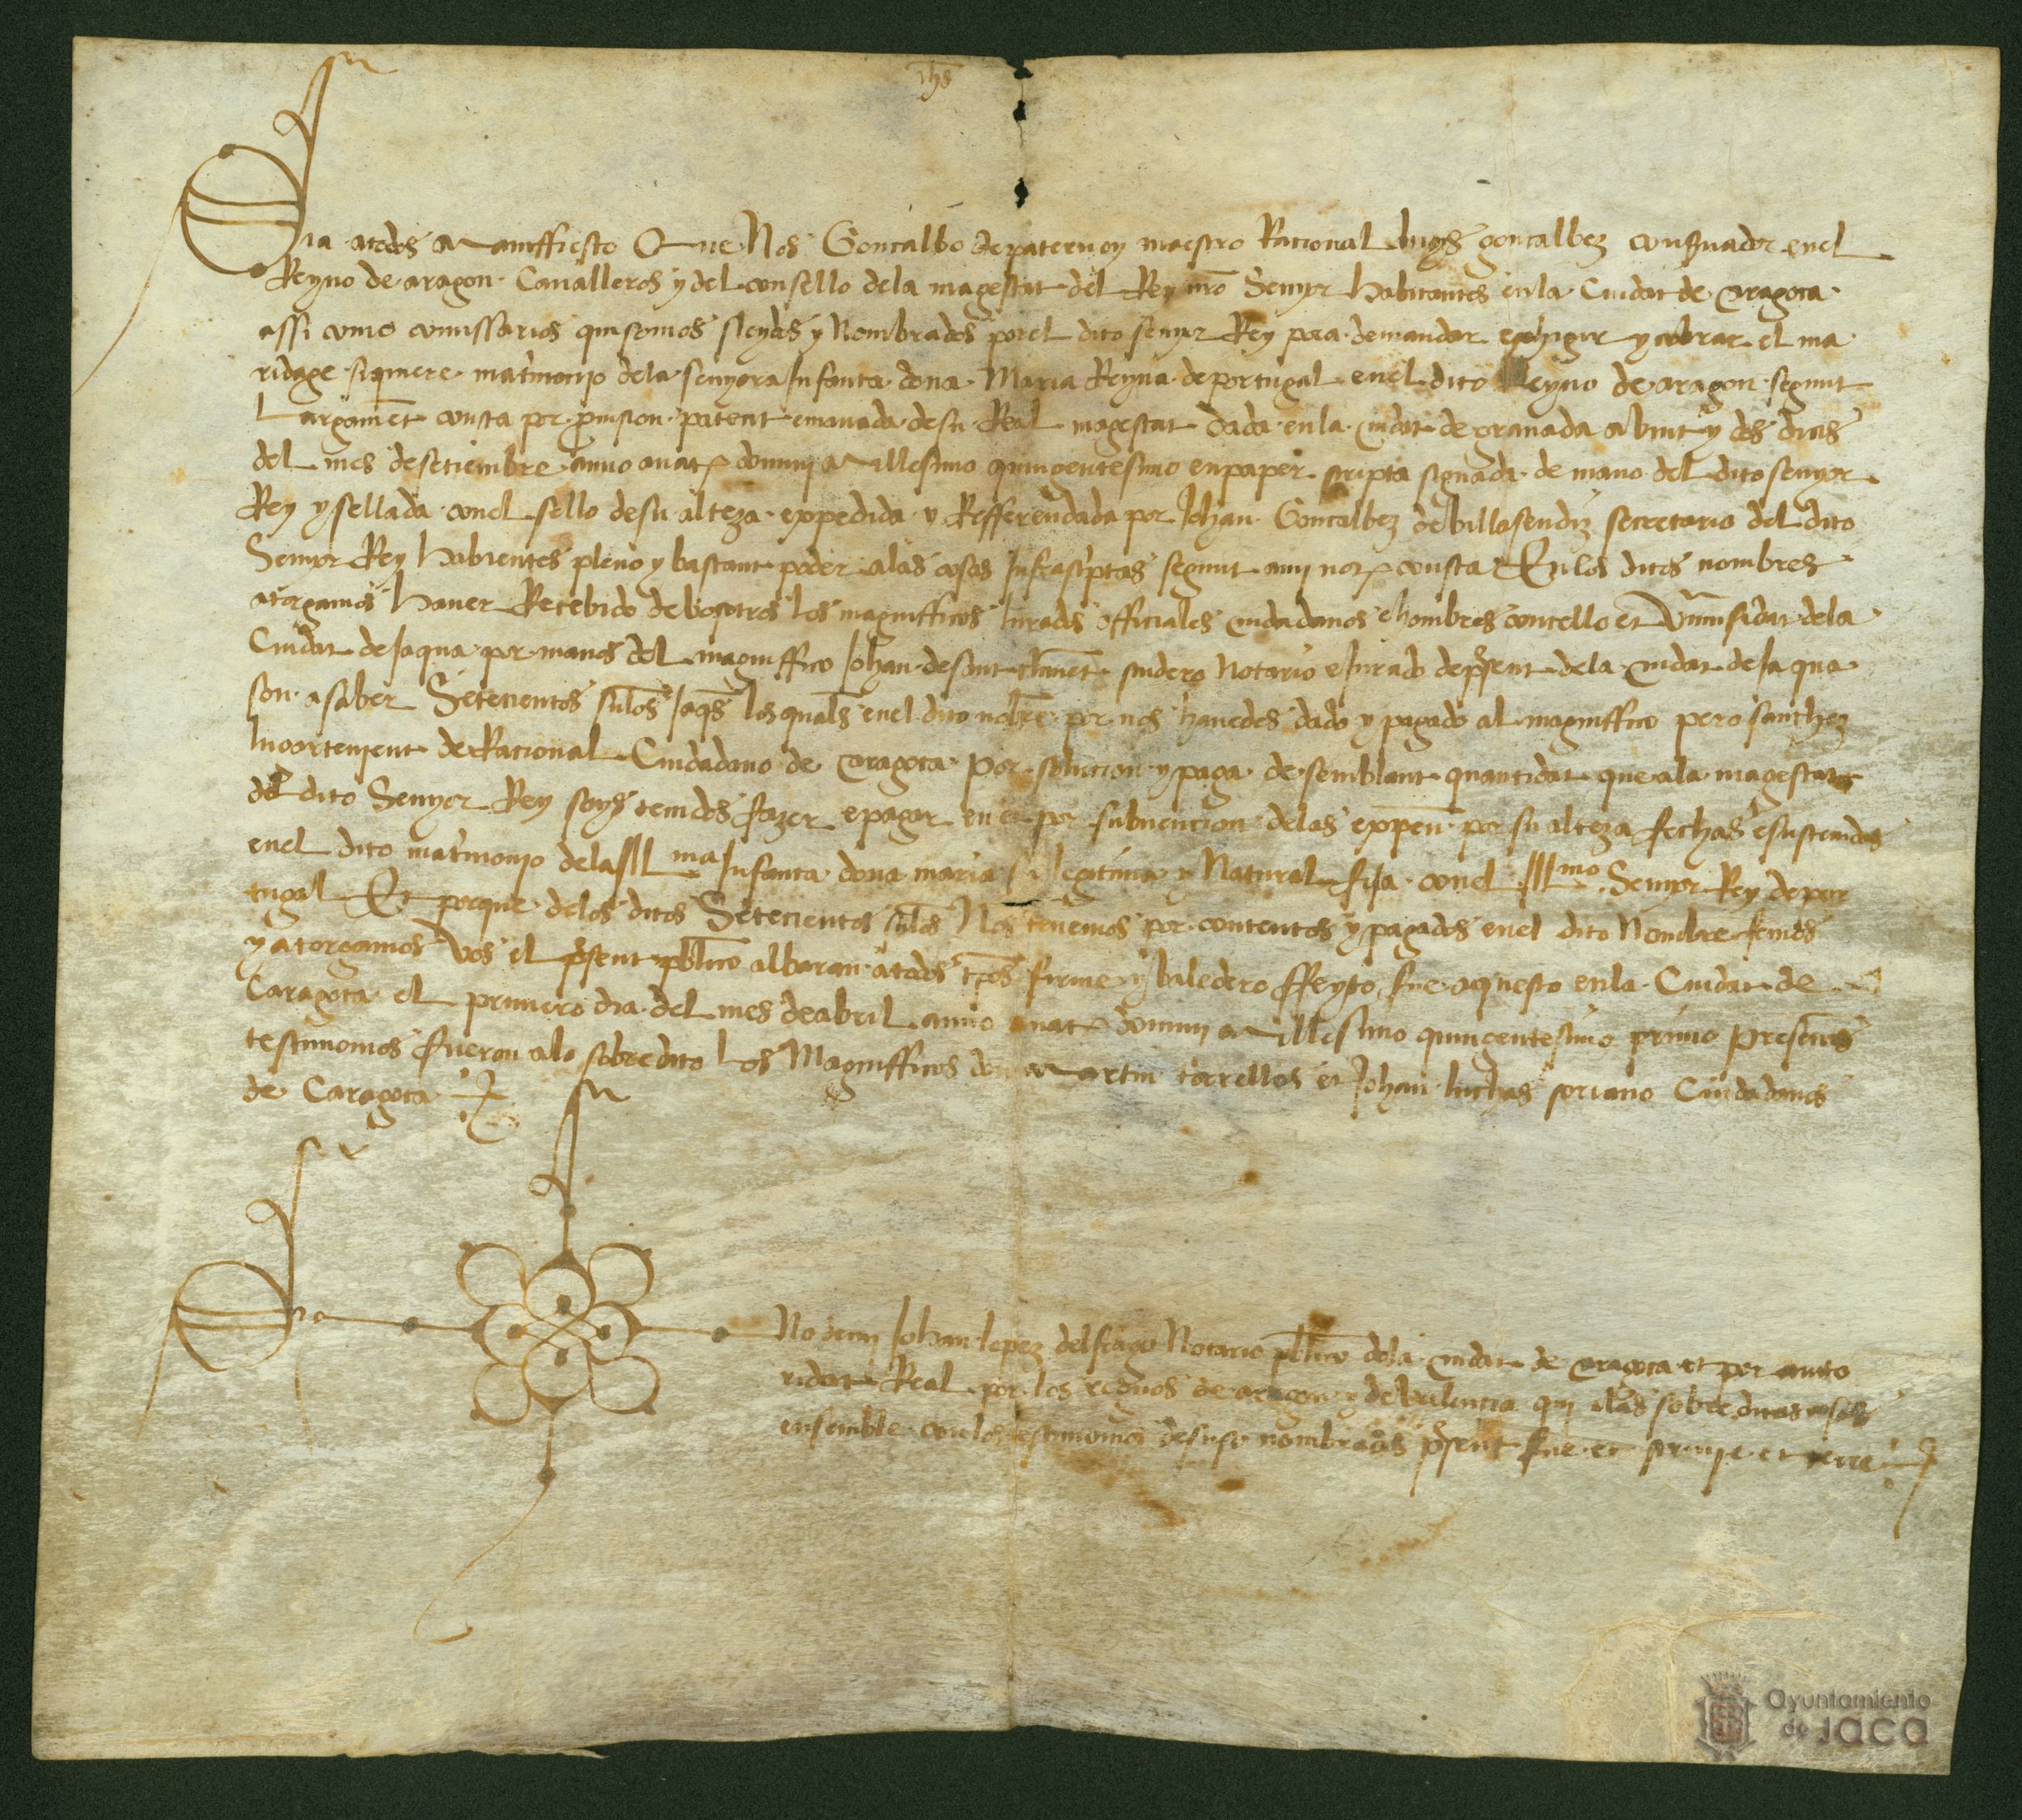 Jhs
Sia atodos Maniffiesto Que Nos Goncalbo de paternoy maestro Racional luys goncalbez conseruador enel
Reyno de aragon Caualleros y del consello dela magestat del Rey nro Senyor habitantes enla Ciudat de caragoca
assi como comissarios qui somos sleydos y Nombrados por el dito senyor Rey pora demandar exhigir y cobrar el ma
ridage siquiere matrimonio dela senyora Infanta dona Maria Reyna de portugal enel dito Reyno de aragon segunt
Largament consta por prouision patent emanada de su Real magestat dada enla ciudat de granada a vint y dos dias
del mes de setiembre anno anat domini Millesimo quingentesimo en paper scripta signada de mano del dito senyor
Rey y sellada conel sello desu alteza expedida y Refferendada por Johan Goncalbez de billasendiz secretario del dito
Senyor Rey habientes pleno y bastant poder alas cosas Infrascriptas segunt ami not consta En los ditos nombres
atorgamos hauer Recebido de bosotros los magnifficos Jurados officiales ciudadanos e hombres concello et vniuersidat dela
Ciudat de Jaqua por manos del magniffico Johan de sant sindero Notario e Jurado de present dela ciudat de Jaqua
son asaber Setecientos sulos Jaqs los quals enel dito nobre por nos hauedes dado y pagado al magniffico pero sanchez
lucartenient de Racional Ciudadano de caragoca por solucion y paga de semblant quantidat que ala magestat
del dito Senyor Rey soys tenidos fazer e pagar en et por subuencion delas expen por su alteza fechas e sustenidas
enel dito matrimonio dela Illma Infanta dona maria legitima y Natural fija conel Illmo Senyor Rey de por
tugal Et porque delos ditos Setecientos sulos Nos tenemos por contentos y pagados enel dito Nombre femos
y atorgamos vos el present publico albaran atodos tpos firme y baledero ffeyto fue aquesto enla Ciudat de
Caragoca el primero dia del mes de abril anno anat domini Millesimo quingentesimo primo Presentes
testimonios fueron alo sobredito Los Magnifficos don Martin torrellas et Johan luchas soriano Ciudadanos
de Caragoca
Sig
No de mi Johan lopez del frago Notario publico dela ciudat de caragoca et por aucto
ridat Real por los regnos de aragon y de valencia qui alas sobreditas cosas
ensemble con los testimonios desuso nombrados present fue et
Ayuntamiento
de Jaca